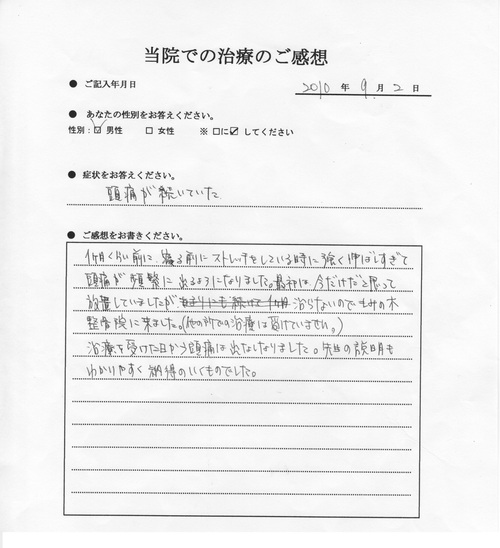 当院での治療のご感想
● ご記入年月日
2010 年 9. 2 日
● あなたの性別をお答えください。
性別：☑ 男性 □ 女性 ※ □に☑ してください
● 症状をお答えください。
頭痛が続いていた
● ご感想をお書きください。
1ヶ月くらい前に、寝る前にストレッチをしている時に強く伸ばしすぎて
頭痛が頻繁に出るようになりました。最初は、今だけだと思って
放置していましたが 治らないのでもみの木
整骨院に来ました。(他の所での治療は受けていません。)
治療を受けた日から頭痛は出なくなりました。先生の説明も
わかりやすく納得のいくものでした。